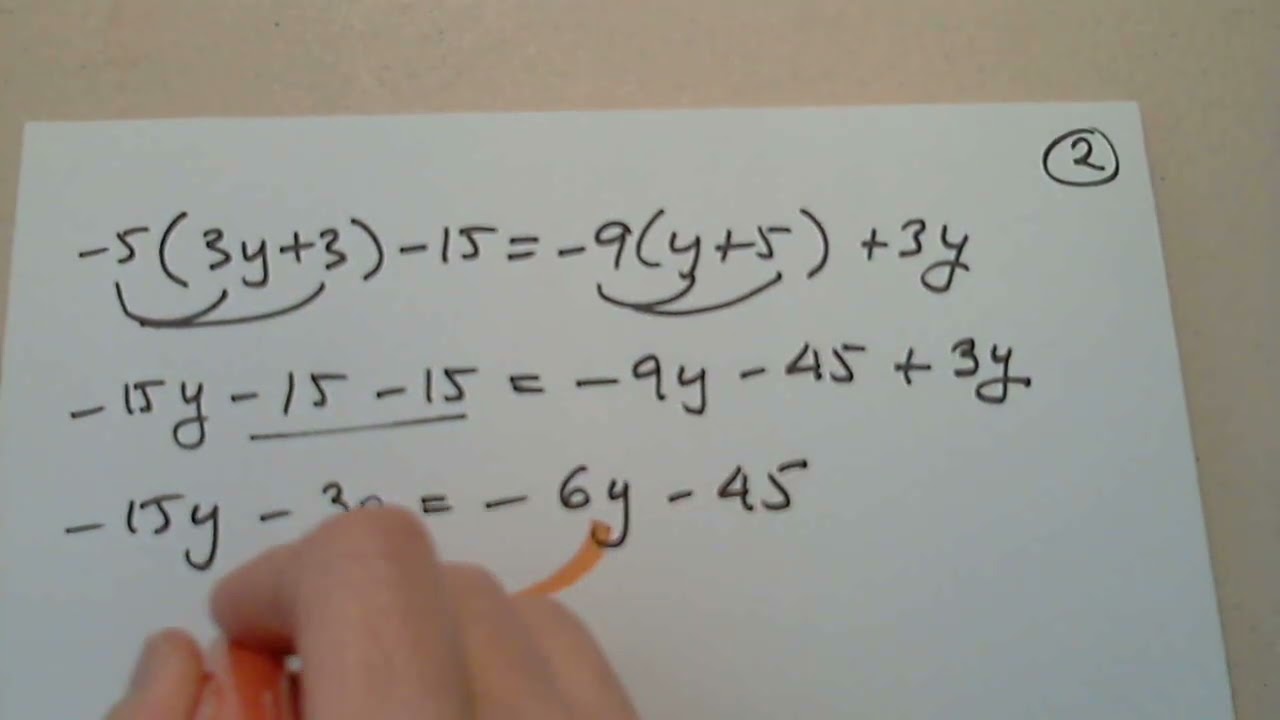 2
-5(3y+3)-15=-9(y+5)+3y
-15y-15-15=-9y-45+3y
-15y-3 = -6y-45